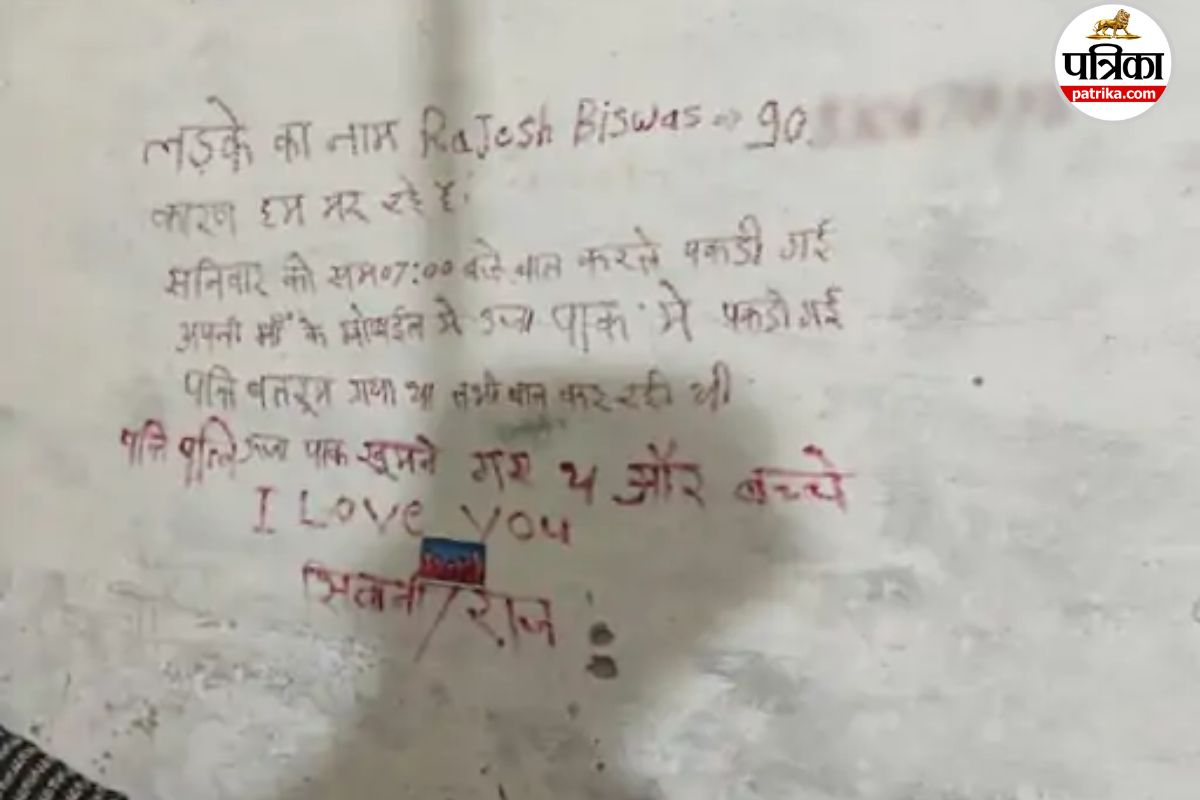 पत्रिका
patrika.com
लड़के का नाम RaJesh Biswas => 90
कारण हम मर रहे है।
सनिवार को सम07:00 बजे बात करते पकडी गई
अपनी माँ के मोबाईल से उजा पाक में पकडी गई
पति बतरूम गया था तभी बात कर रही थी
पति पत्नि उजा पाक घूमने गए थ और बच्चे
I Love you
शिवानी/राज